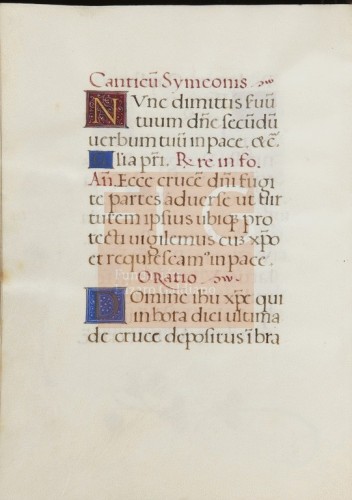 Canticū Symeonis.
Nunc dimittis ſuū
tuum dñe ſecūdū
uerbum tuū in pace. &c̄.
Gl̄ia pr̄i. R̄e re in fo.
Añ. Ecce crucē dñi fugi
te partes aduerſe ut uir
tutem ipſius ubiq; pro
tecti uigilemus cuȝ xp̄o
et requieſcam⁹ in pace.
Oratio.
Domine ihū xp̄e qui
in hora diei ultima
de cruce depoſitus ī bra